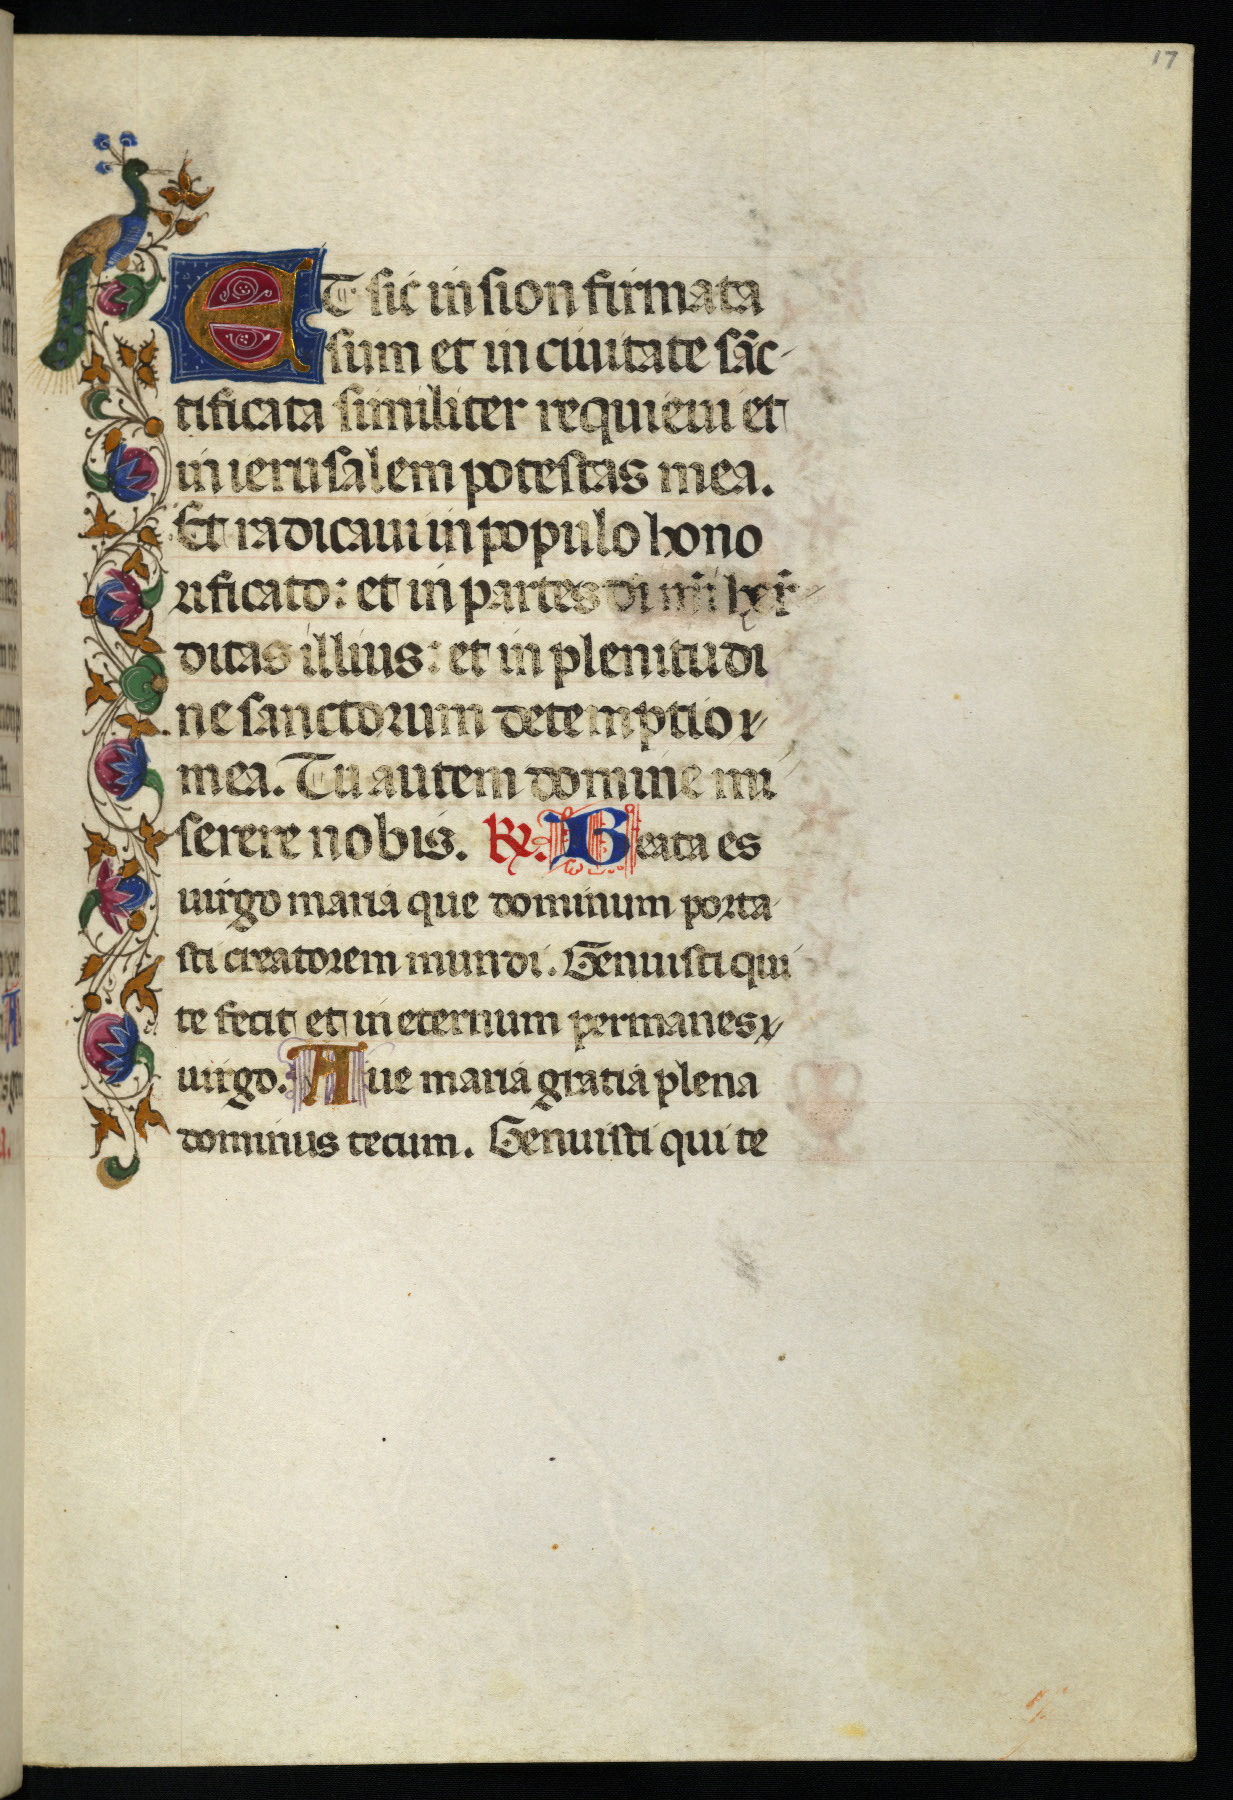 17
ET sic in sion firmata
sum et in ciuitate sāc-
tificata similiter requieui et
in ierusalem potestas mea.
Et radicaui in populo hono
rificato: et in partes di mĩ hẽr-
ditas illius: et in plenitudi
ne sanctorum detemptio
mea. Tu autem domine mi
serere nobis. R. Beata es
uirgo maria que dominum porta
sti creatorem mundi. Genuisti qui
te fecit et in eternum permanes
uirgo. Aue maria gratia plena
dominus tecum. Genuisti qui te